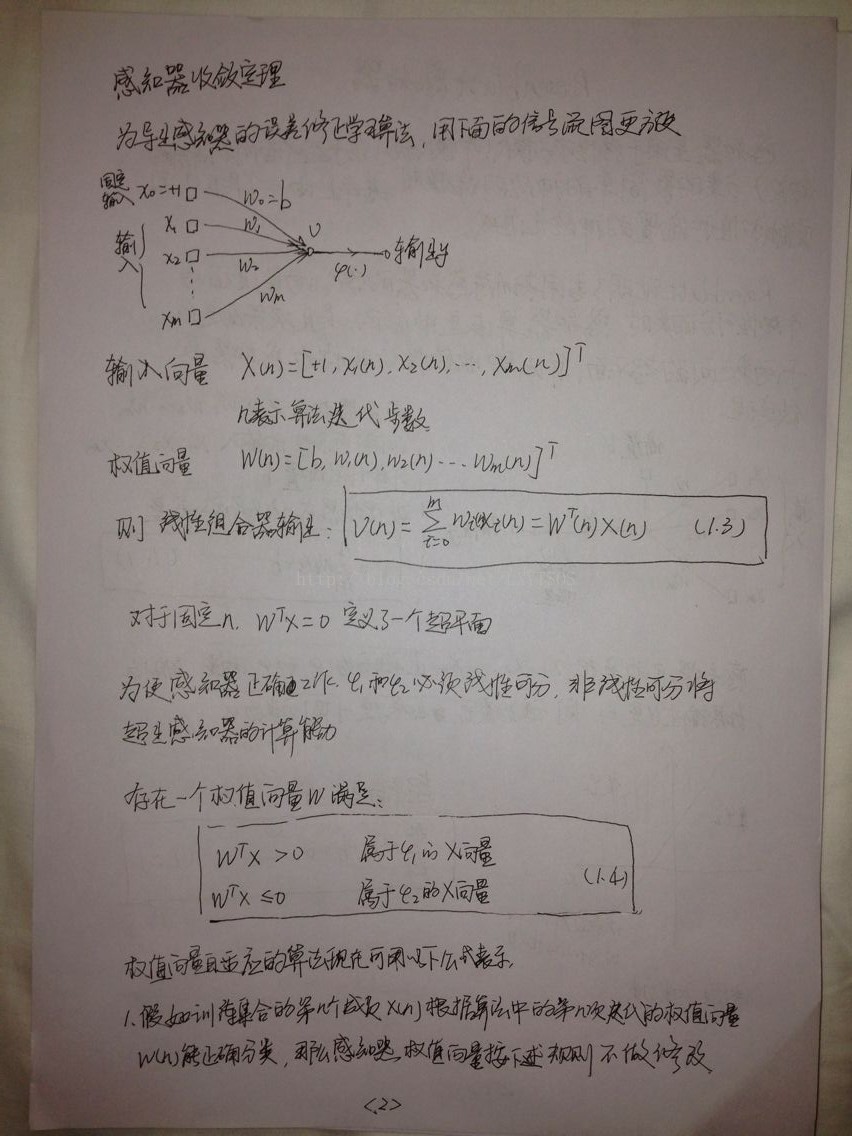 感知器收敛定理
为导出感知器的误差修正学习算法,用下面的信号流图更方便
固定输入 x₀=+1 w₀=b
x₁ w₁ v
输入 x₂ w₂ φ(·) 输出y
xm wm
输入向量 X(n)=[+1, x₁(n), x₂(n), ···, xm(n)]ᵀ
n表示算法迭代步数
权值向量 W(n)=[b, w₁(n), w₂(n) ··· wm(n)]ᵀ
则 线性组合器输出: V(n)=∑ᵢ₌₀ᵐ wᵢ(n)xᵢ(n)=Wᵀ(n)X(n) (1.3)
对于固定n, WᵀX=0 定义了一个超平面
为使感知器正确工作, φ₁和φ₂必须线性可分, 非线性可分将
超出感知器的计算能力
存在一个权值向量W满足:
WᵀX >0 属于φ₁的X向量
WᵀX ≤0 属于φ₂的X向量 (1.4)
权值向量自适应的算法现在可用以下公式表示,
1.假如训练集合的第n个成员X(n)根据算法中的第n次迭代的权值向量
W(n)能正确分类, 那么感知器权值向量按下述规则不做修改
<2>